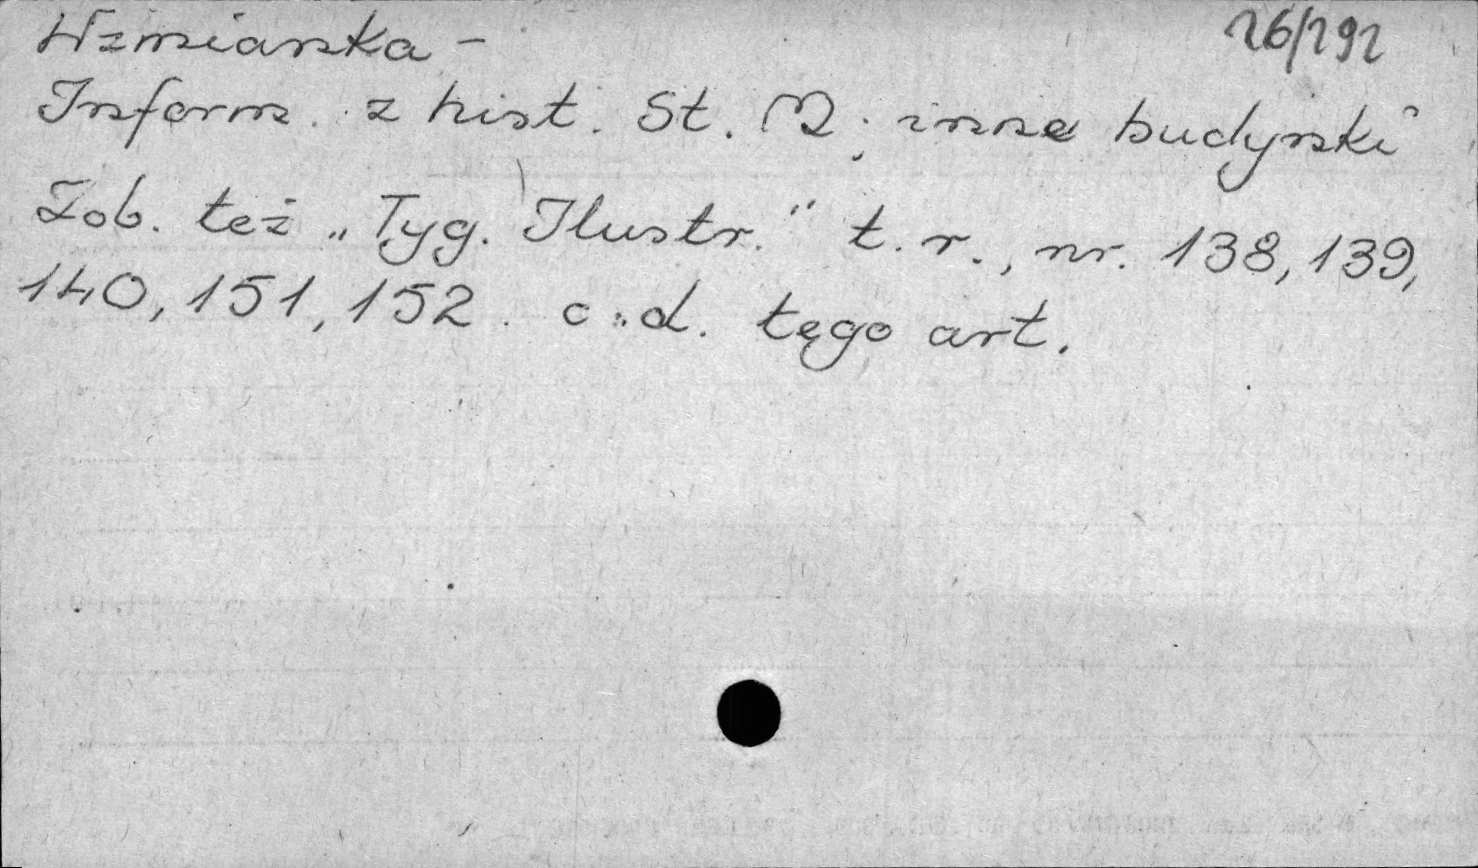 26/292
Wzmianka -
Inform. z hist. St. M; inne budynki
Zob. też „Tyg. Ilustr." t. r., nr. 138, 139,
140, 151, 152. c.d. tęgo art.